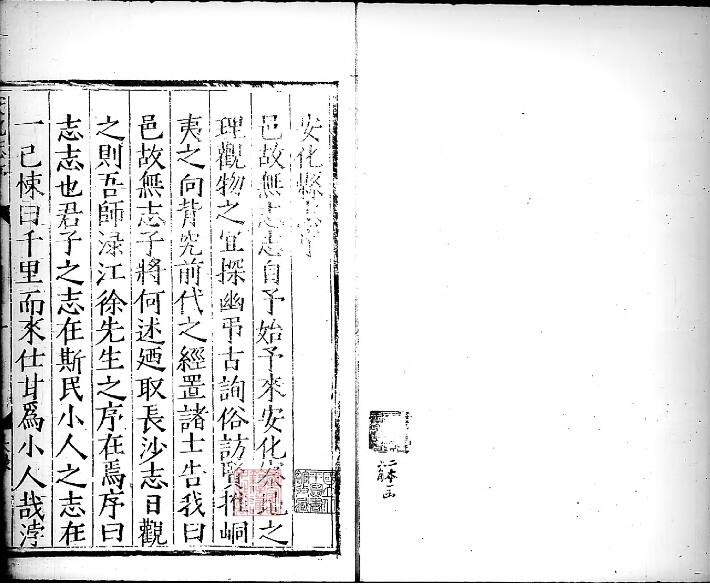 安化縣志序
邑故無志志自予始予來安化察記之
理觀物之宜探幽弔古詢俗訪賢推峒
夷之向背究前代之經置諸士告我曰
邑故無志子將何述廼取長沙志日觀
之則吾師淥江徐先生之序在焉序曰
志志也君子之志在斯民小人之志在
一己悚曰千里而來仕甘為小人哉浡
二本五